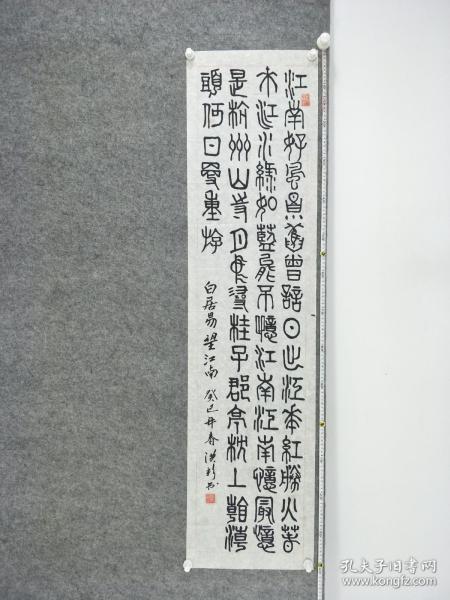 江南好風景舊曾諳日出江花紅勝火春
來江水綠如藍能不憶江南江南憶最憶
是杭州山寺月中尋桂子郡亭枕上看潮
頭何日更重游
白居易望江南 癸巳年春 书
孔夫子旧书网
www.kongfz.com